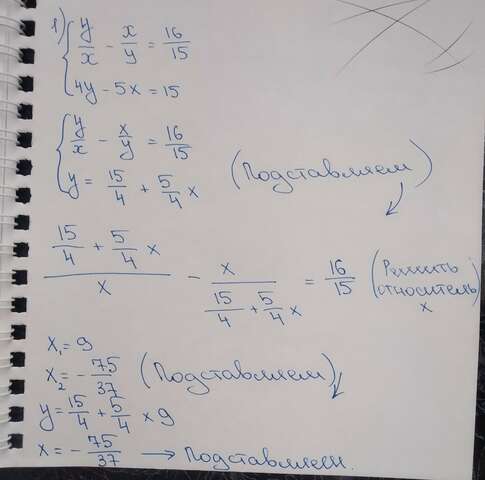 1) { y/x - x/y = 16/15
4y - 5x = 15
{ y/x - x/y = 16/15
y = 15/4 + 5/4 x
(Подставляем)
(15/4 + 5/4 x)/x - x/(15/4 + 5/4 x) = 16/15
(Решить
относитель
x
x₁ = 9
x₂ = - 75/37
(Подставляем)
y = 15/4 + 5/4 x 9
x = - 75/37 → Подставляем.